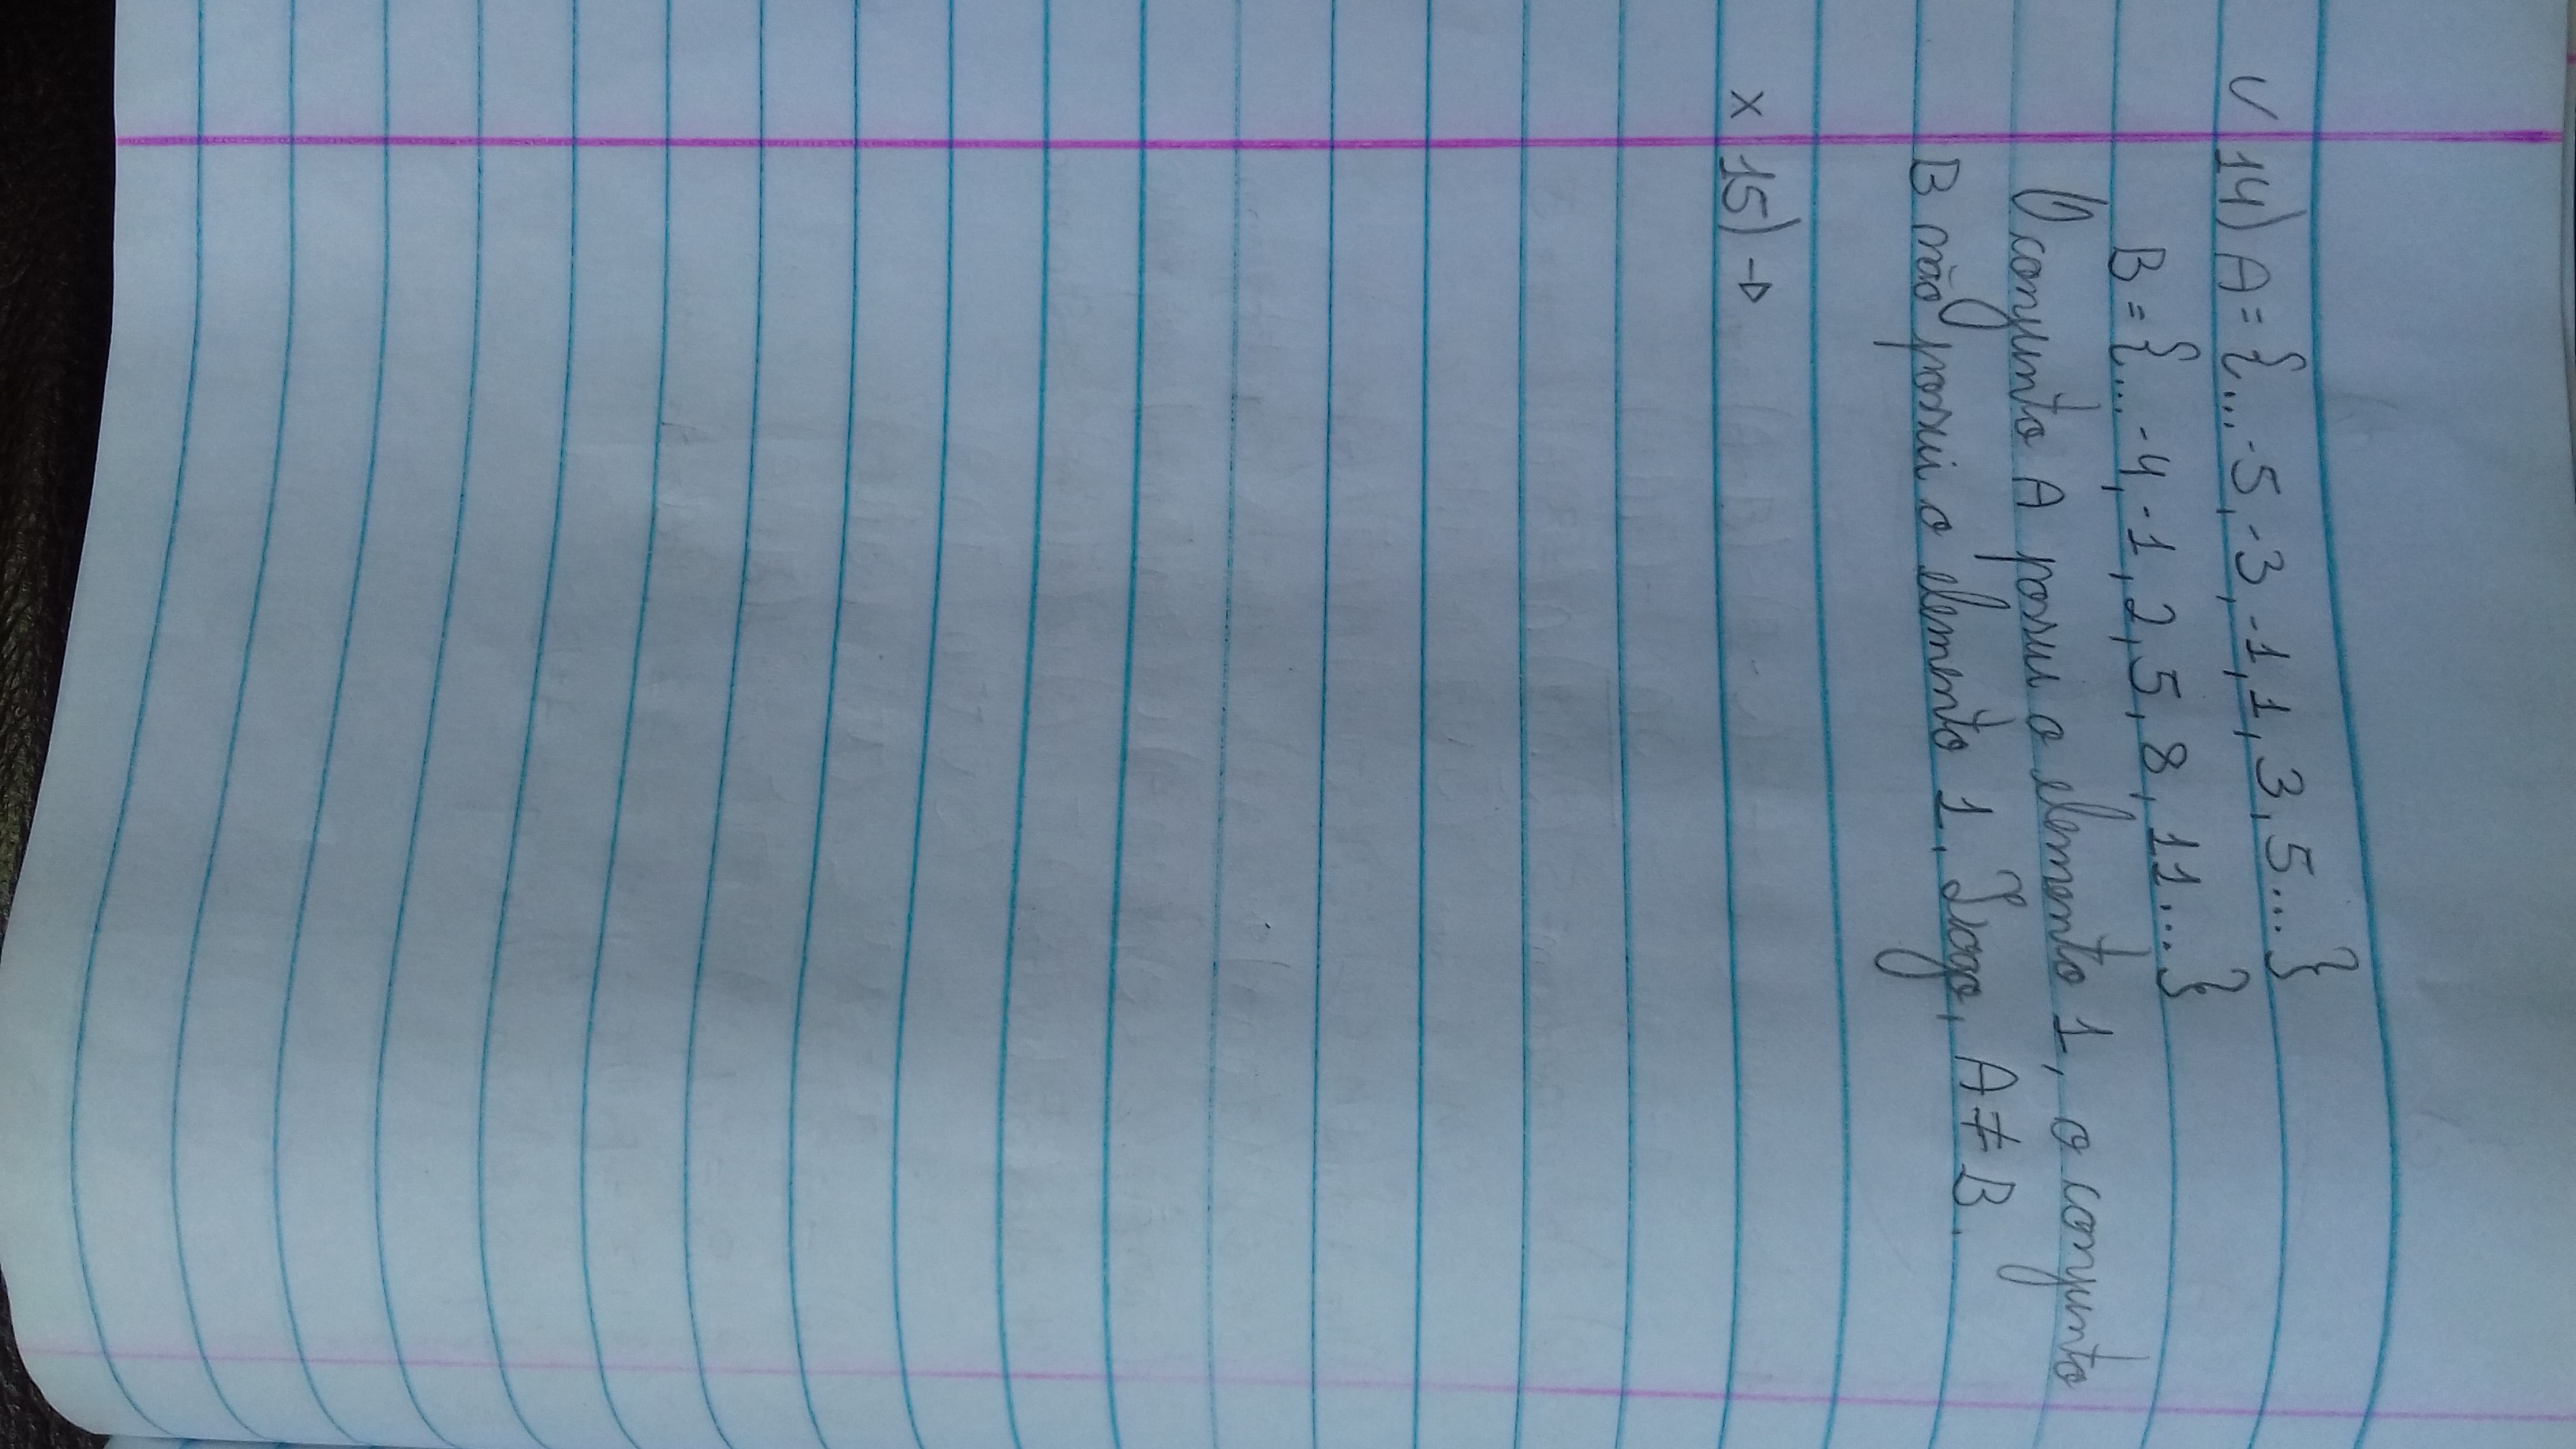 ✓ 14) A = {...-5, -3, -1, 1, 3, 5...}
B = {...-4, -1, 2, 5, 8, 11...}
O conjunto A possui o elemento 1, o conjunto
B não possui o elemento 1. Logo, A ≠ B.
x 15) →